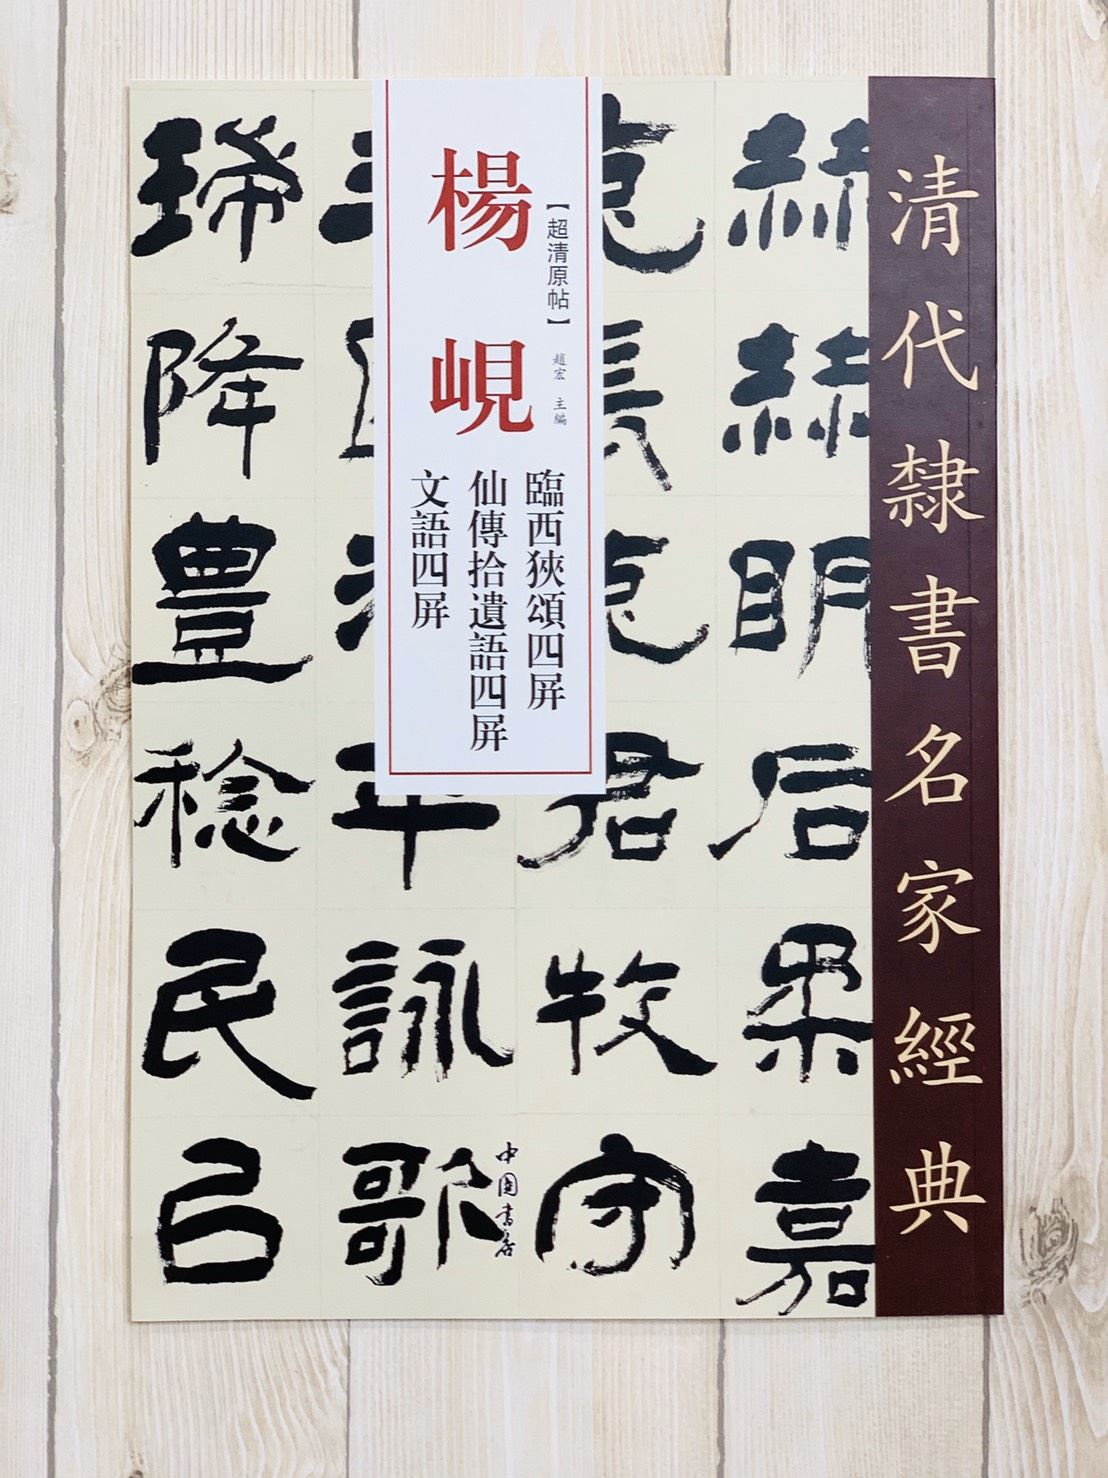 清代隸書名家經典
楊峴
【超清原帖】
趙宏 主編
臨西狹頌四屏
仙傳拾遺語四屏
文語四屏
絲絲明后柔嘉
君牧守
年詠歌
降豐稔民已
中國書店